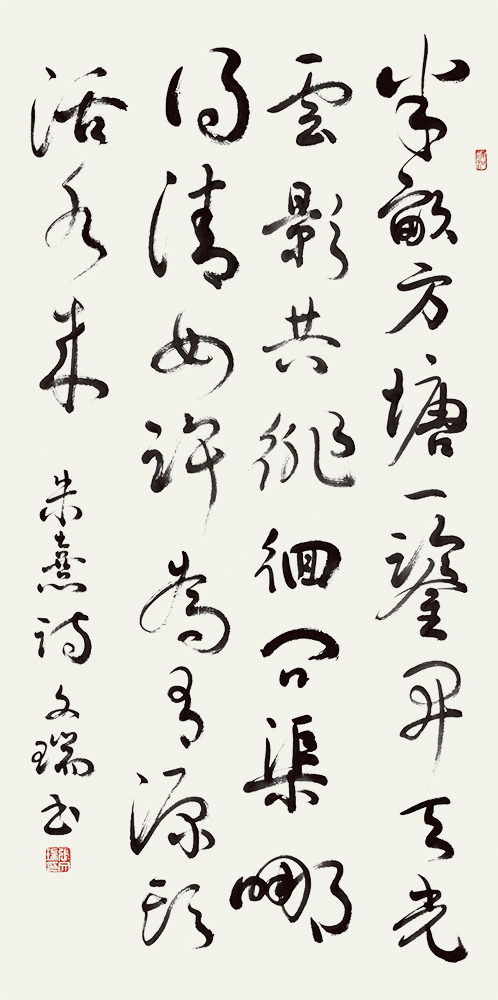 半畝方塘一鑒開天光
雲影共徘徊問渠哪
得清如許為有源頭
活水來
朱熹詩 文瑞書